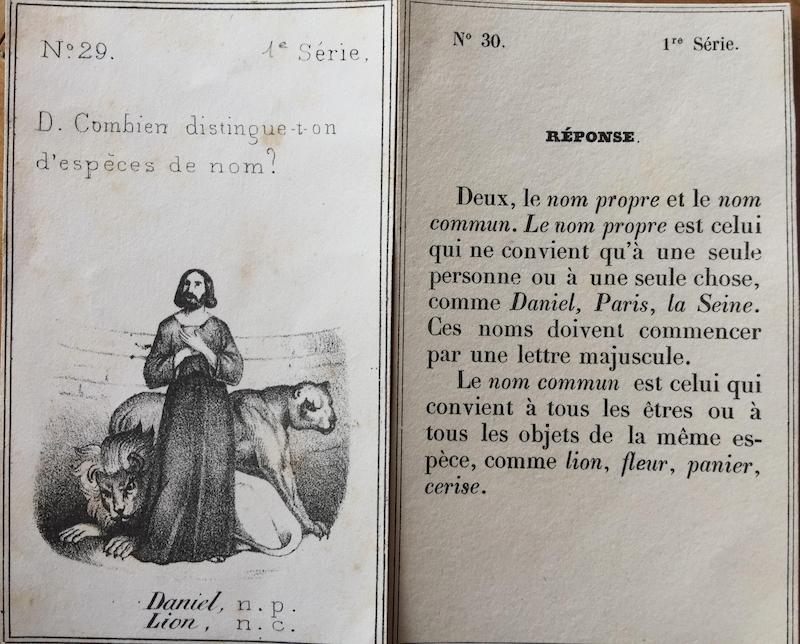 N.º 29. 1e Série,
D. Combien distingue-t-on
d'espèces de nom?
Daniel, n.p.
Lion, n.c.
Nº 30. 1re Série.
RÉPONSE.
Deux, le nom propre et le nom
commun. Le nom propre est celui
qui ne convient qu'à une seule
personne ou à une seule chose,
comme Daniel, Paris, la Seine.
Ces noms doivent commencer
par une lettre majuscule.
Le nom commun est celui qui
convient à tous les êtres ou à
tous les objets de la même es-
pèce, comme lion, fleur, panier,
cerise.